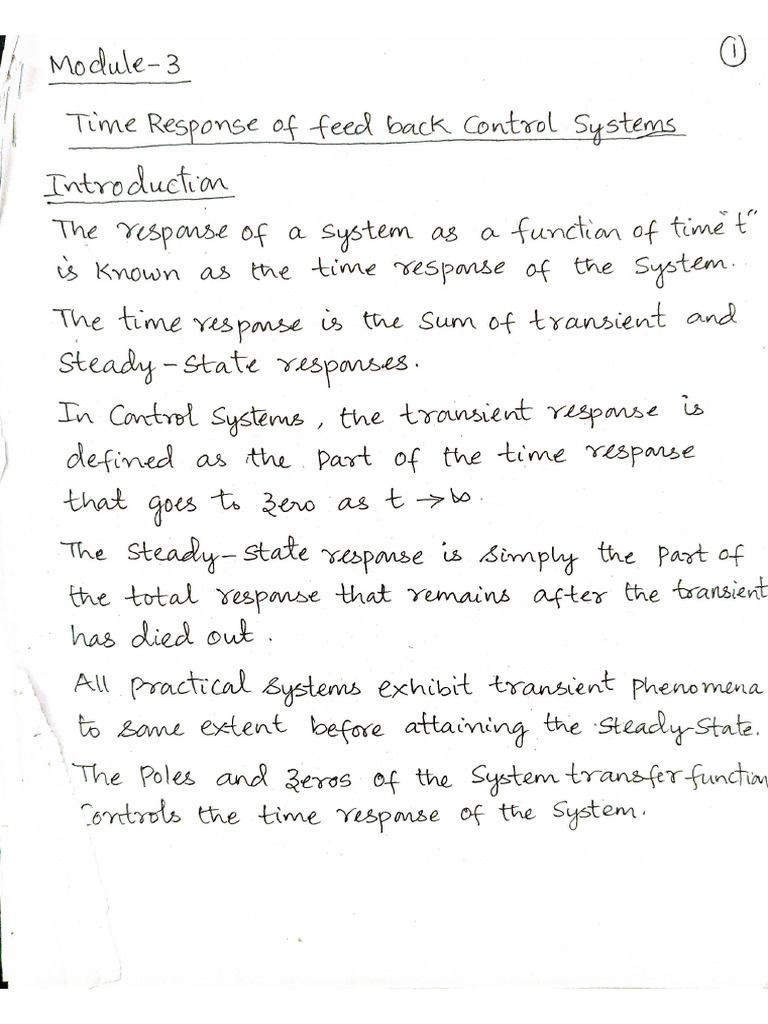 1
Module-3
Time Response of feed back Control Systems
Introduction
The response of a system as a function of time "t"
is known as the time response of the System.
The time response is the sum of transient and
Steady-State responses.
In Control Systems, the transient response is
defined as the part of the time response
that goes to zero as t → ∞.
The Steady-State response is simply the part of
the total response that remains after the transient
has died out.
All practical systems exhibit transient phenomena
to some extent before attaining the Steady-State.
The Poles and zeros of the System transfer-function
Controls the time response of the System.